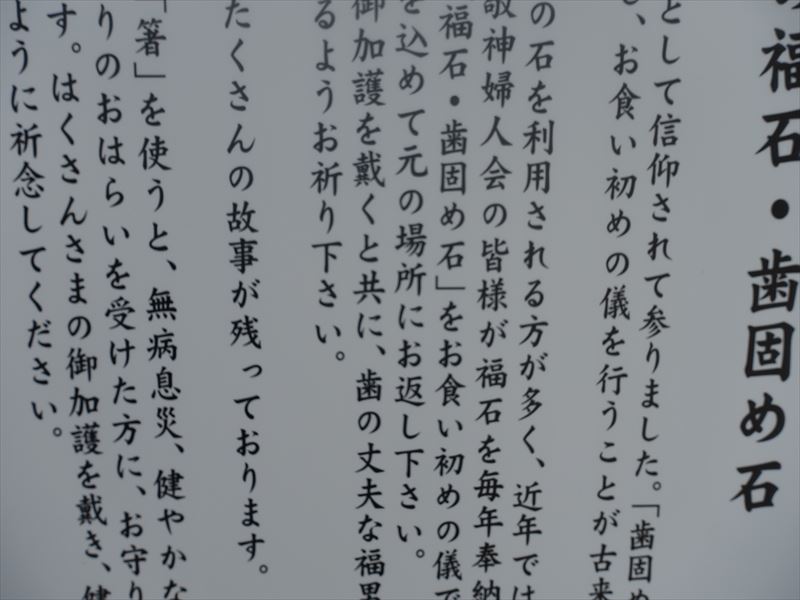 の福石・歯固め石
として信仰されて参りました。「歯固め
、お食い初めの儀を行うことが古来
の石を利用される方が多く、近年では
敬神婦人会の皆様が福石を毎年奉納
福石・歯固め石」をお食い初めの儀で
を込めて元の場所にお返し下さい。
御加護を戴くと共に、歯の丈夫な福男
るようお祈り下さい。
たくさんの故事が残っております。
「箸」を使うと、無病息災、健やかな
りのおはらいを受けた方に、お守り
す。はくさんさまの御加護を戴き、健
ように祈念してください。